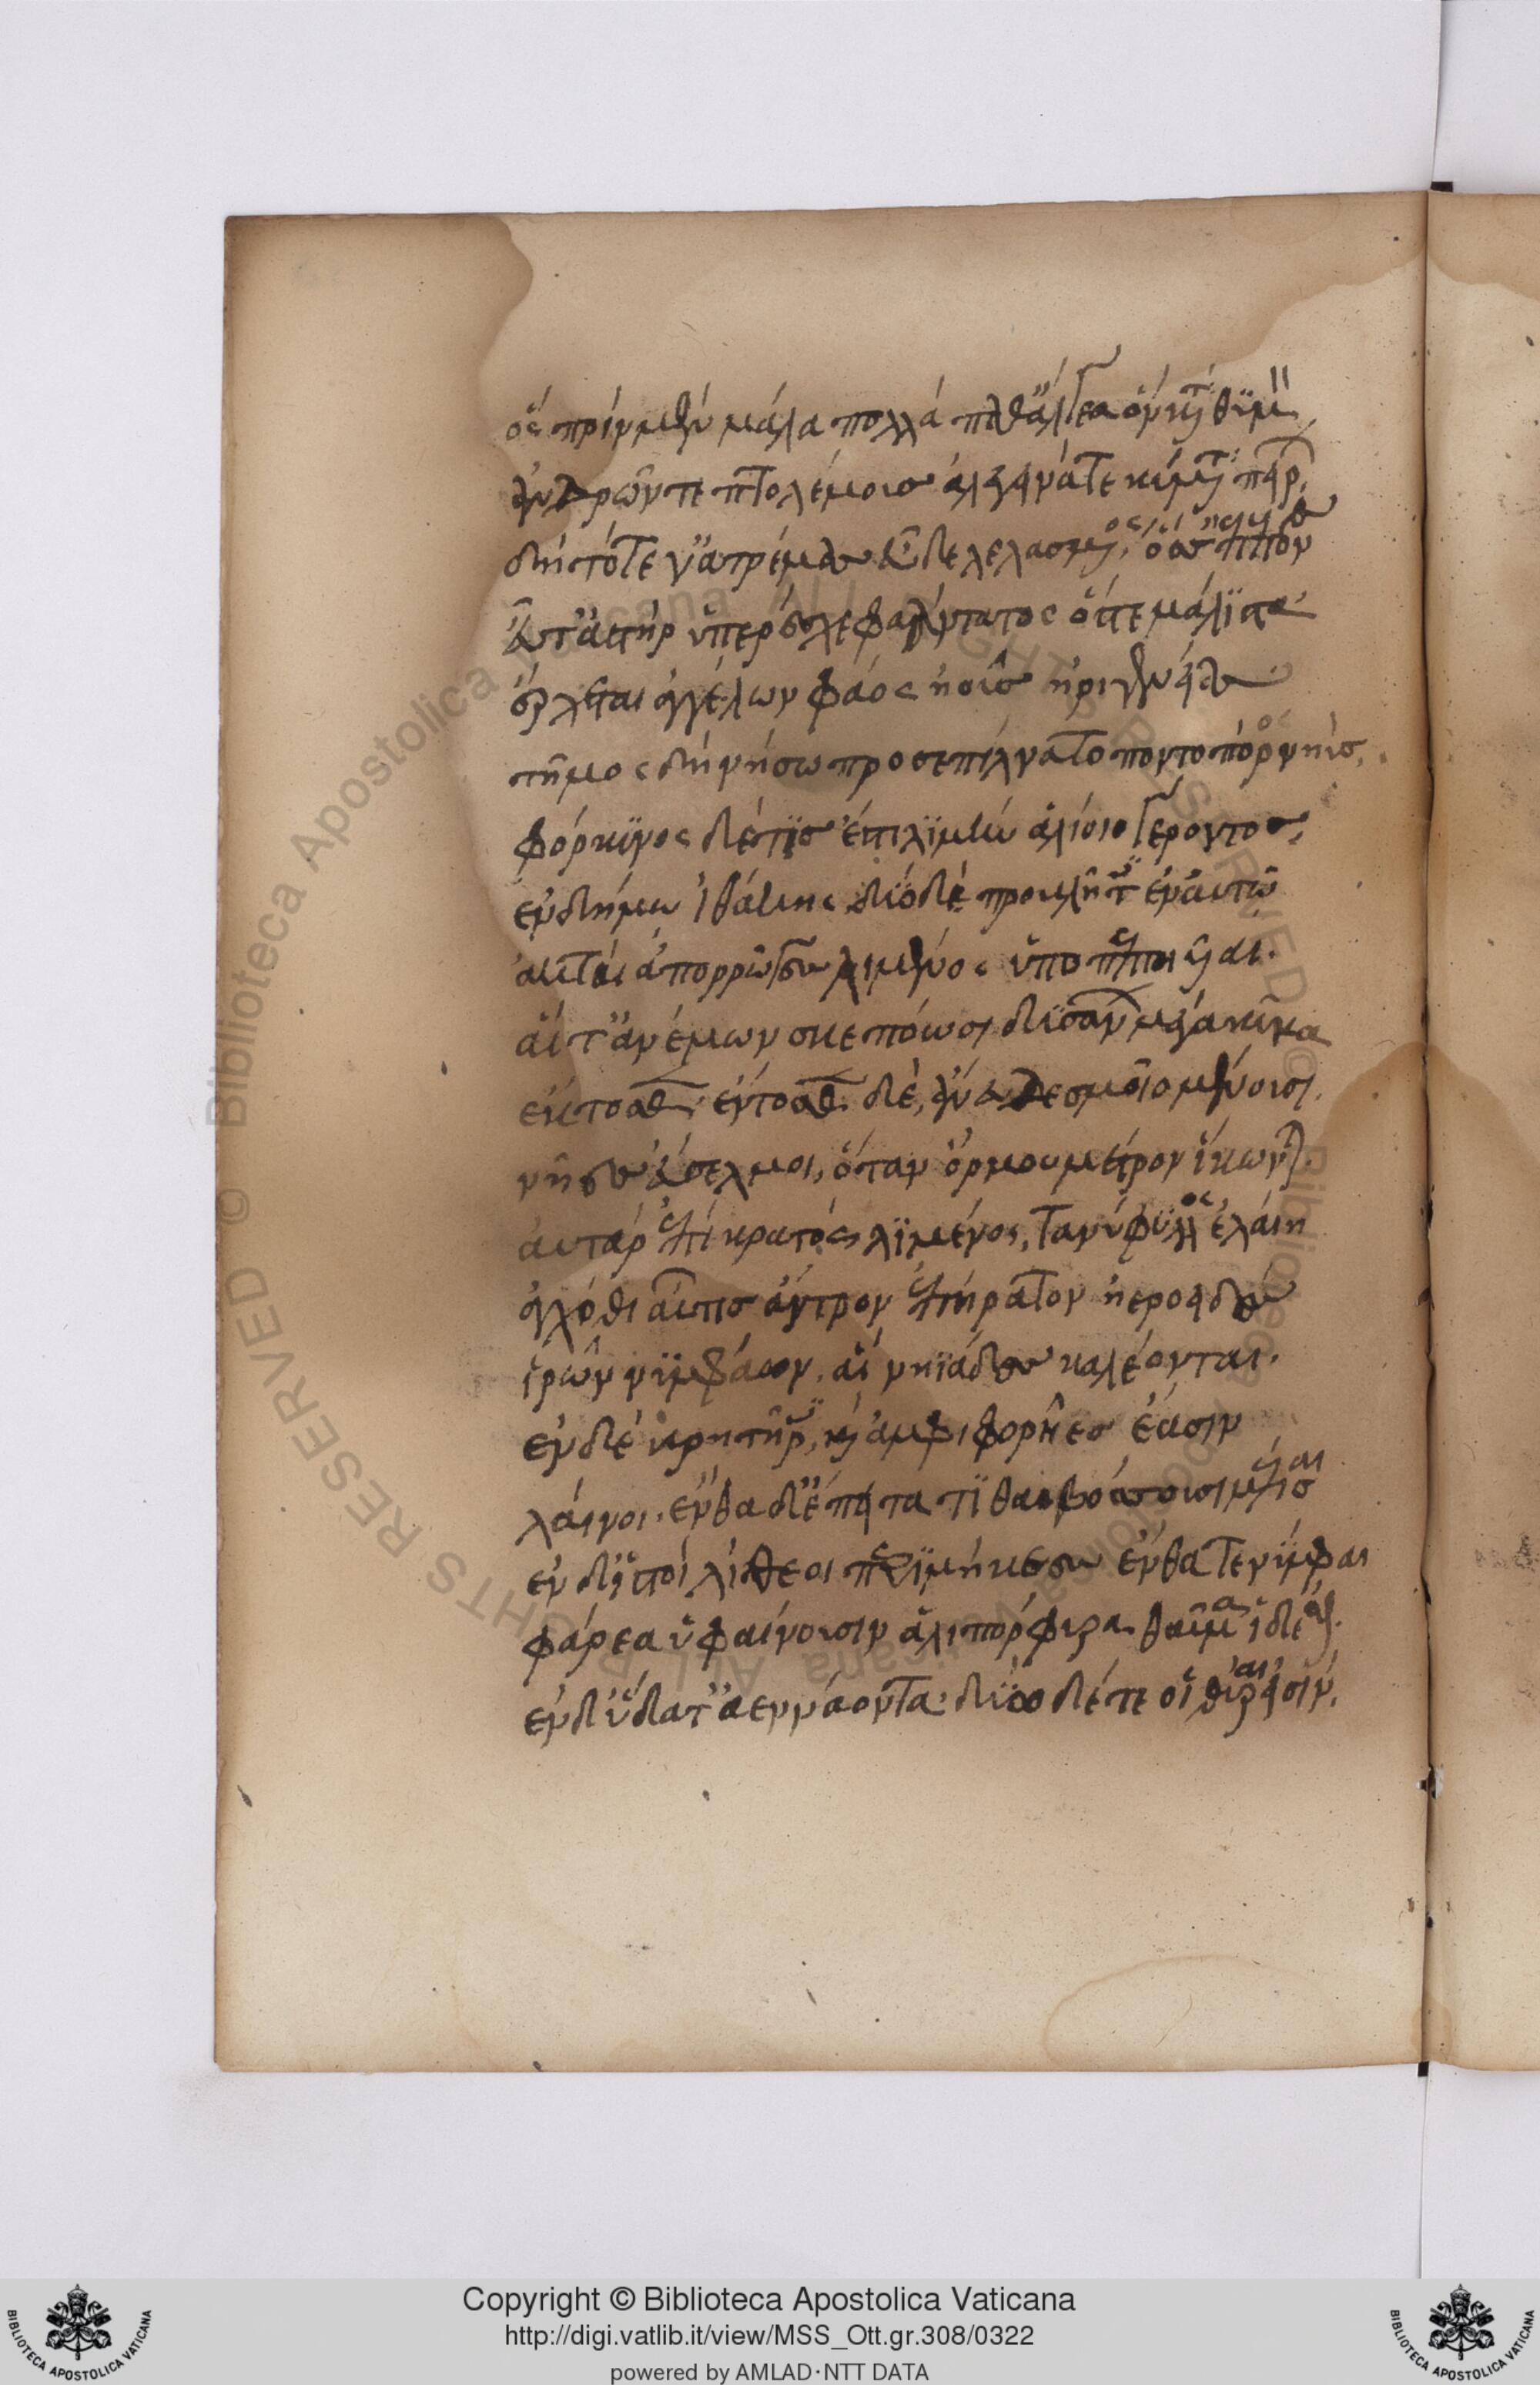 ὅς πρὶν μὲν μάλα πολλὰ πάθ' ἄλγεα ὃν κατὰ θυμὸν
ἀνδρῶν τε πτολέμους ἀλεγεινά τε κύματα πείρων
δὴ τότε γ' ἀτρέμας εὗδε λελασμένος, ὅσσ' ἐπεπόνθει
εὖτ' ἀστὴρ ὑπερέσχε φαάντατος ὅς τε μάλιστα
ἔρχεται ἀγγέλλων φάος ἠοῦς ἠριγενείης
τῆμος δὴ νήσω προσεπίλνατο ποντοπόρος νηῦς.
φόρκυνος δέ τις ἐστὶ λιμὴν ἁλίοιο γέροντος,
ἐν δήμω ἰθάκης δύο δὲ προβλῆτες ἐν αὐτῶ
ἀκταὶ ἀπορρῶγες λιμένος ὑποπεπτηυῖαι.
αἵ τ' ἀνέμων σκεπόωσι δυσαήων μέγα κῦμα
ἔκτοθεν· ἔντοσθεν δέ, ἄνευ δεσμοῖο μένουσι.
νῆες ἐύσελμοι, ὅταν ὅρμου μέτρον ἵκωνται.
αὐτὰρ ἐπὶ κρατὸς λιμένος, τανύφυλλος ἐλαίη
ἀγχόθι δ' αὐτῆς ἄντρον ἐπήρατον ἠεροειδὲς
ἱρὸν νυμφάων, αἳ νηϊάδες καλέονται.
ἐν δὲ κρητῆρες, καὶ ἀμφιφορῆες ἔασιν
λάινοι. ἔνθα δ' ἔπειτα τιθαιβώσσουσι μέλισσαι
ἐν δ' ἱστοὶ λίθεοι περιμήκεες ἔνθα τε νύμφαι
φάρεα ὑφαίνουσιν ἁλιπόρφυρα θαῦμα ἰδέσθαι.
ἐν δ' ὕδατ' ἀενάοντα· δύω δέ τέ οἱ θύραι εἰσίν.
Copyright © Biblioteca Apostolica Vaticana
http://digi.vatlib.it/view/MSS_Ott.gr.308/0322
powered by AMLAD·NTT DATA
BIBLIOTECA APOSTOLICA VATICANA
BIBLIOTECA APOSTOLICA VATICANA